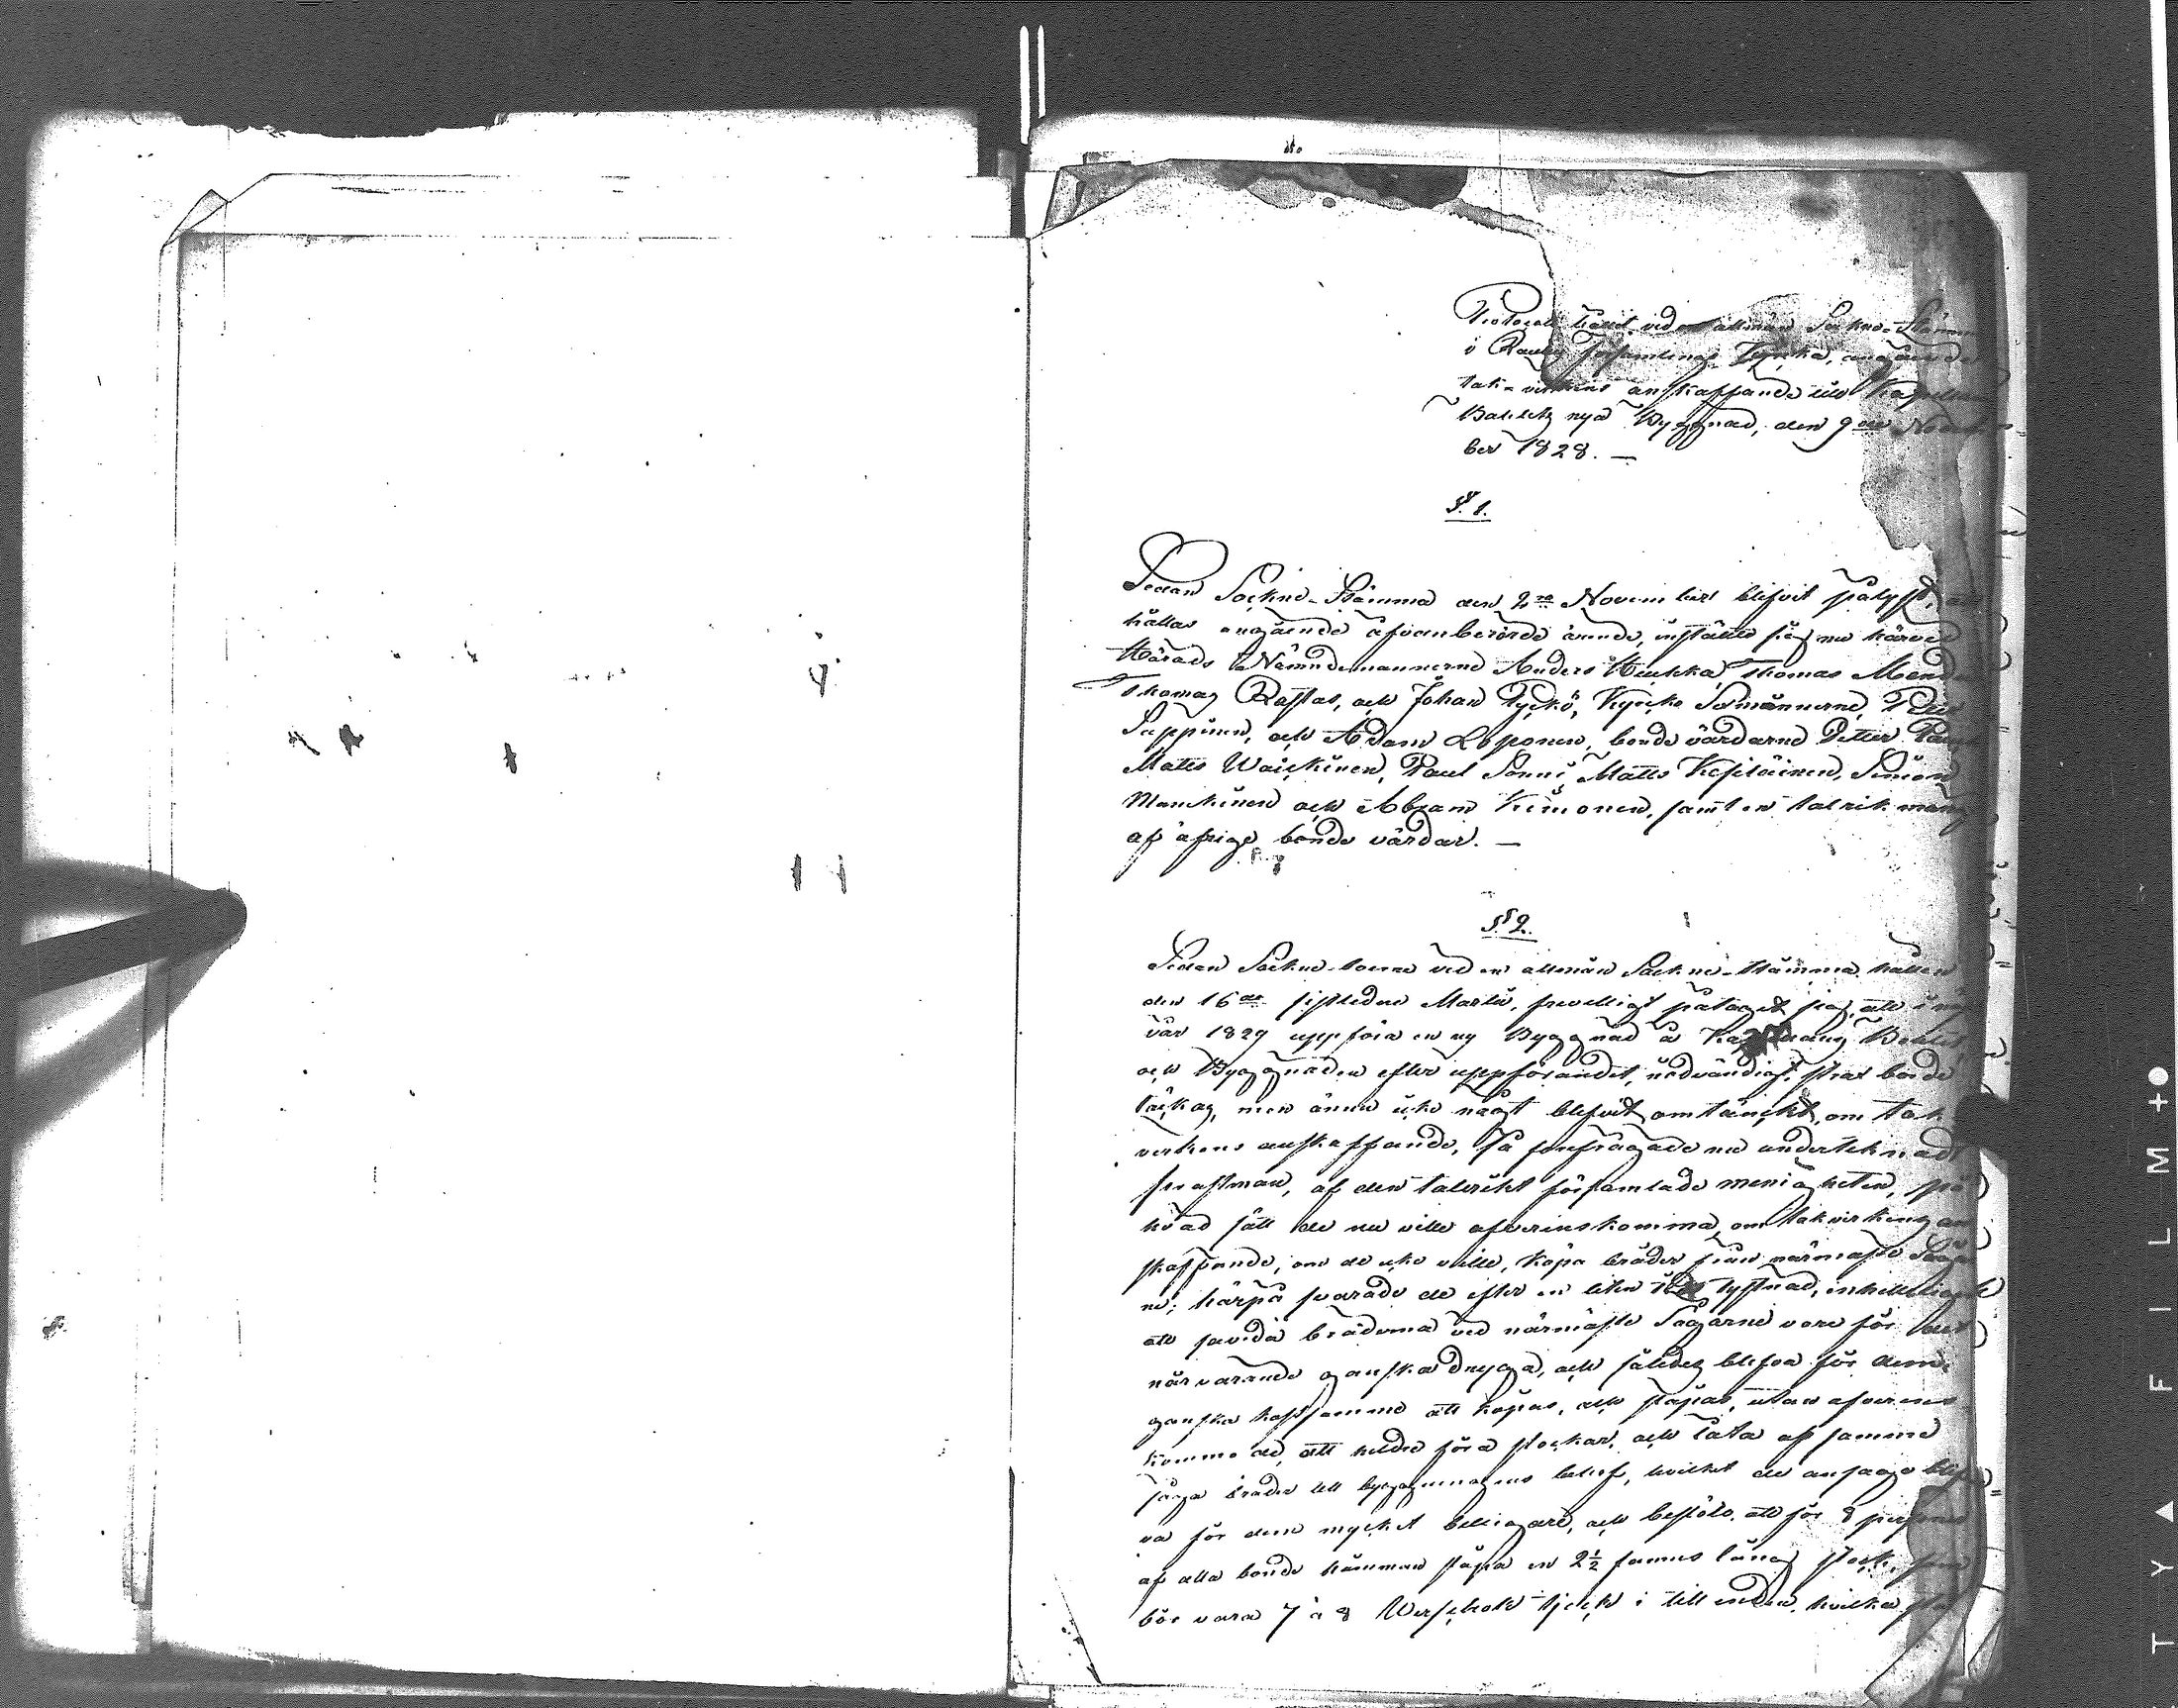 Protocoll hållet vid allmän Sockne-Stämma
i Rautus församlings Kyrka, angående
tak-virkens anskaffande till Kapellans
Bohlets nya Byggnad, den 9de Novem=
ber 1828. —
§. 1.
Sedan Sockne-Stämma den 2ra November blifvit pålyst, att
hållas angående ofvanberörde ämne, inställte sig nu härvid
Härads Nämndemannerne Anders Heukka, Thomas
Thomas Rastas, och Johan Kyrko Sexmännerne,
och Adam Loponen, bonde värdarne Petter
Matts Waickinen, Paul Sonni, Matts Kesiläinen, Simon
och Abram Kimonen, samt en talrik mängd
af öfrige bonde värdar. —
§ 2.
Sedan Sockne-boerne vid en allmän Sockne-Stämma, hållen
den 16de sistledne Martii, frivilligt påtagit sig, att
vår 1829 uppföra en ny Byggnad å Bohle,
och Byggnaden efter uppförandet, nödvändigt strax borde
täckas, men ännu icke någt blifvit omtänckt, om tak
virkens anskaffande, Så förefrågade nu undertecknad
af den talrikt församlade menigheten, på
hvad sätt de nu ville öfverenskomma, om takvirkens an
skaffande, om de icke ville, köpa bräder från närmaste Sågar
ne; härpå svarade de efter en liten tystnad, enhelleligt
att savida bräderna vid närmaste Sågarne vore för det
närvarande ganska dryga, och således blefvo för dem
ganska kostsamme att köpas, och utan öfverens
kommo de, att hellre föra stockar, och låta af samme
såga bräder till byggnadens behof, hvilket de ansågo blif=
va för dem mycket billigare, och beslöto, att för 8 persone
af alla bonde hämman släpa en 2½ famns lång stock, som
bör vara 7 à 8 Werschok tjock i till endan, hvilka
T Y ▲ F I L M + ●